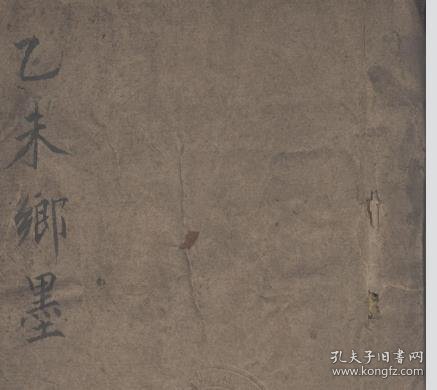 乙未鄉墨
孔夫子旧书网
www.kongfz.com